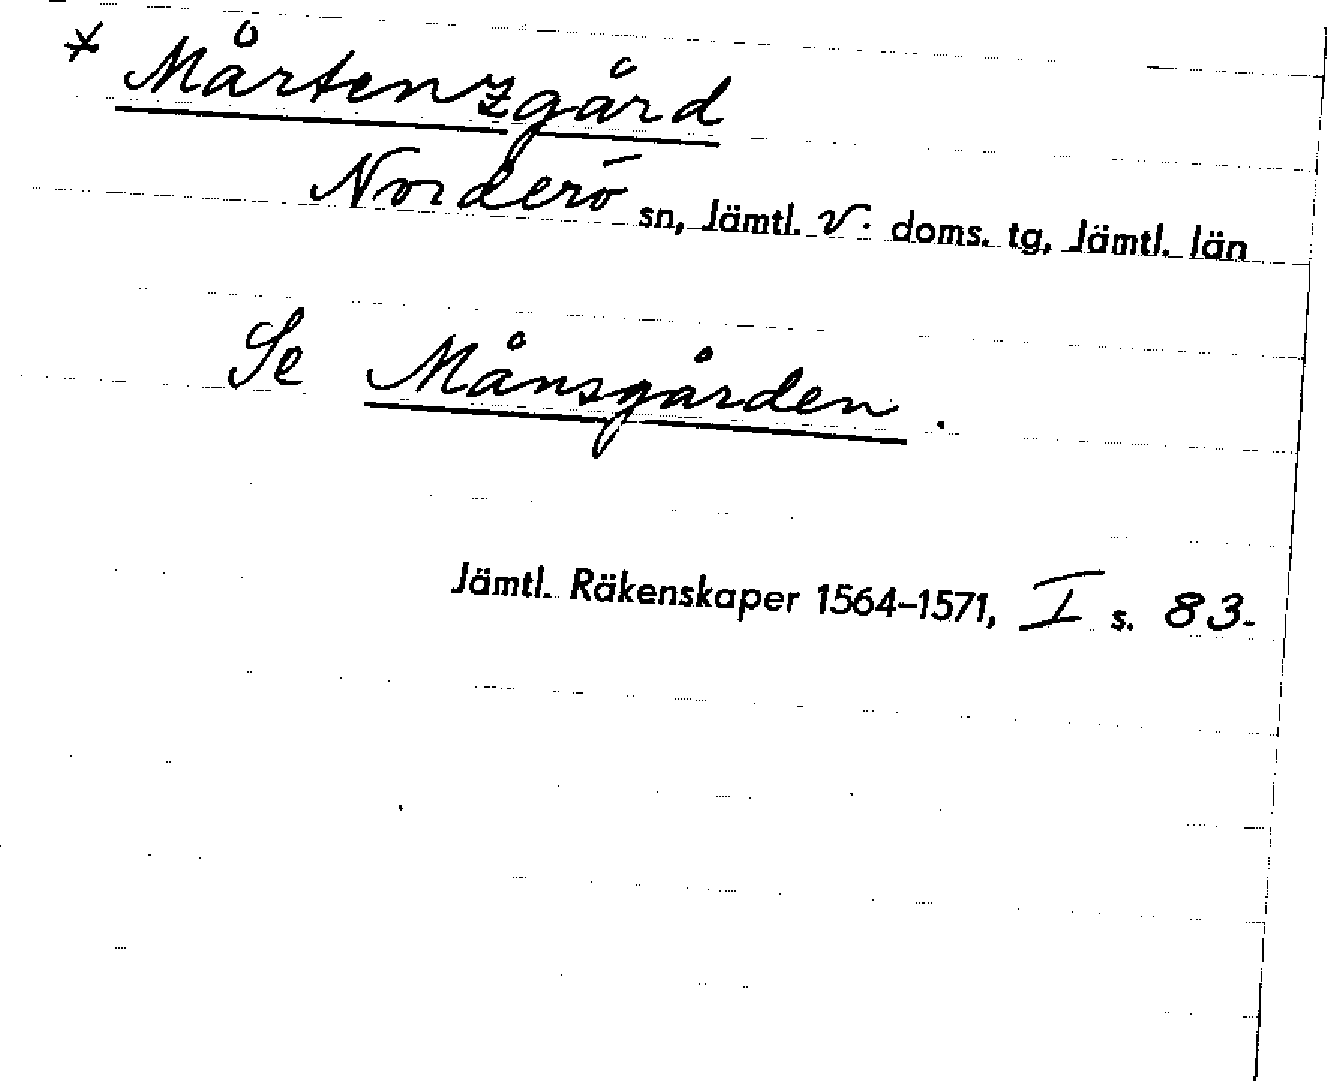 * Mårtenzgård
Norderö sn, Jämtl. v. doms. tg, Jämtl. län
Se Månsgården.
Jämtl. Räkenskaper 1564–1571, I s. 83.